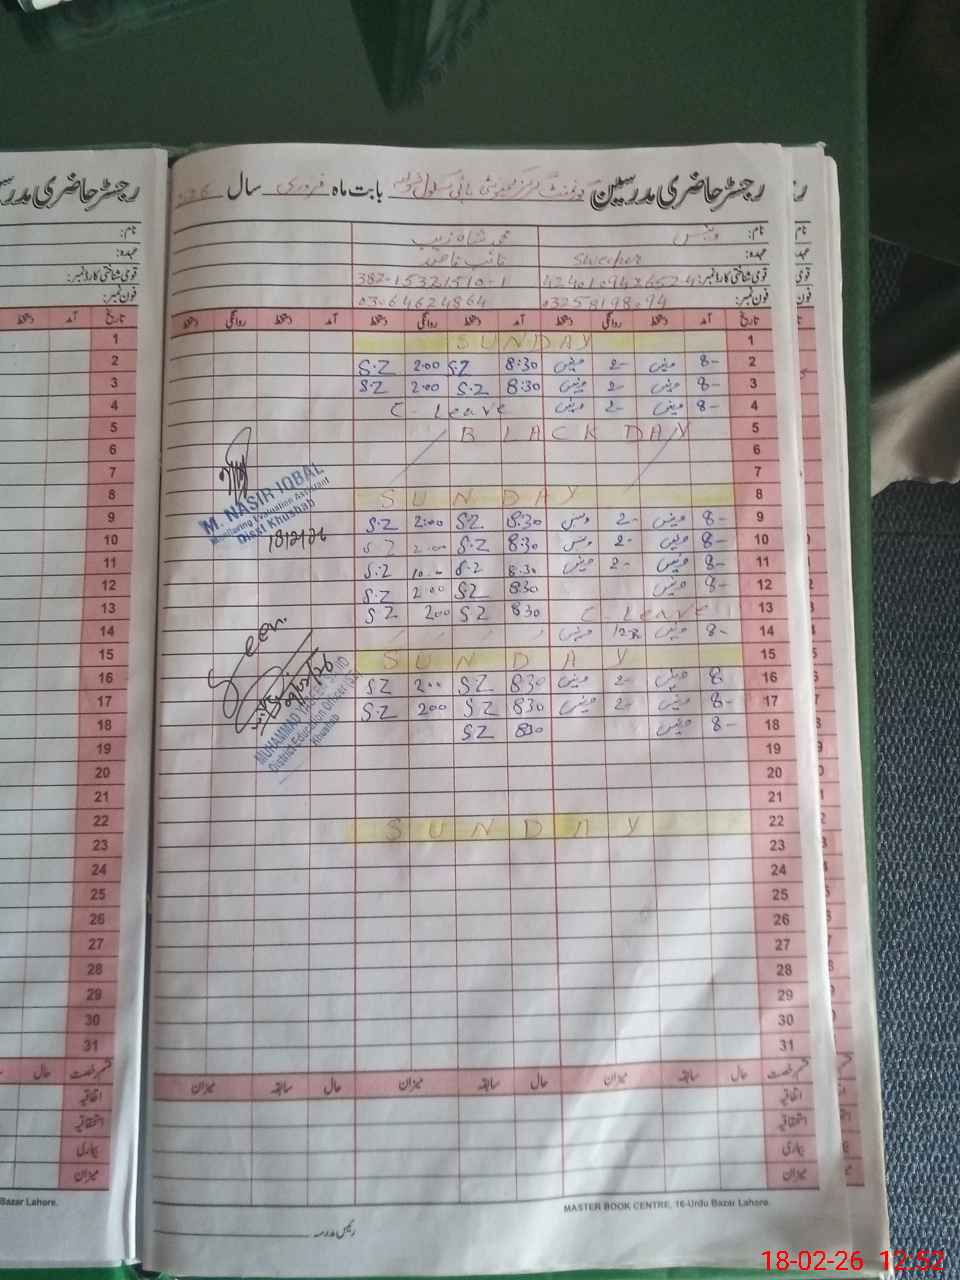 رجسٹر حاضری مدرسین گورنمنٹ گرلز ہائی سکول بابت ماہ فروری سال
نام: وینس محمد شاہ زیب
عہدہ: Sweeper نائب قاصد
قومی شناختی کارڈ نمبر:
فون نمبر: 03258198094 03064624864
تاریخ آمد دستخط روانگی دستخط آمد دستخط روانگی دستخط آمد دستخط روانگی دستخط
1 SUNDAY
2 8- وینس 2- وینس 8:30 S.Z 2:00 S.Z
3 8- وینس 2- وینس 8:30 S.Z 2:00 S.Z
4 8- وینس 2- وینس C. Leave
5 BLACK DAY
6
7
8 SUNDAY
9 8- وینس 2- وینس 8:30 S.Z 2:00 S.Z
10 8- وینس 2- وینس 8:30 S.Z 2:00 S.Z
11 8- وینس 2- وینس 8:30 S.Z 10:00 S.Z
12 8- وینس 8:30 S.Z 2:00 S.Z
13 C. Leave 8:30 S.Z 200 S.Z
14 8- وینس وینس
15 SUNDAY
16 8 وینس 2- وینس 830 S.Z 200 S.Z
17 8- وینس 2- وینس 830 S.Z 200 S.Z
18 8- وینس 830 S.Z
19
20
21
22 SUNDAY
23
24
25
26
27
28
29
30
31
M. NASIR IQBAL
Monitoring Evaluation Assistant
Distt Khushab
18/2/26
Seen
MUHAMMAD
District Education Officer
Khushab
قسم رخصت حال سابقہ میزان حال سابقہ میزان حال سابقہ میزان
اتفاقیہ
استحقاقیہ
بیماری
میزان
MASTER BOOK CENTRE, 16-Urdu Bazar Lahore.
رئیس مدرسہ
Bazar Lahore.
18-02-26 12:52